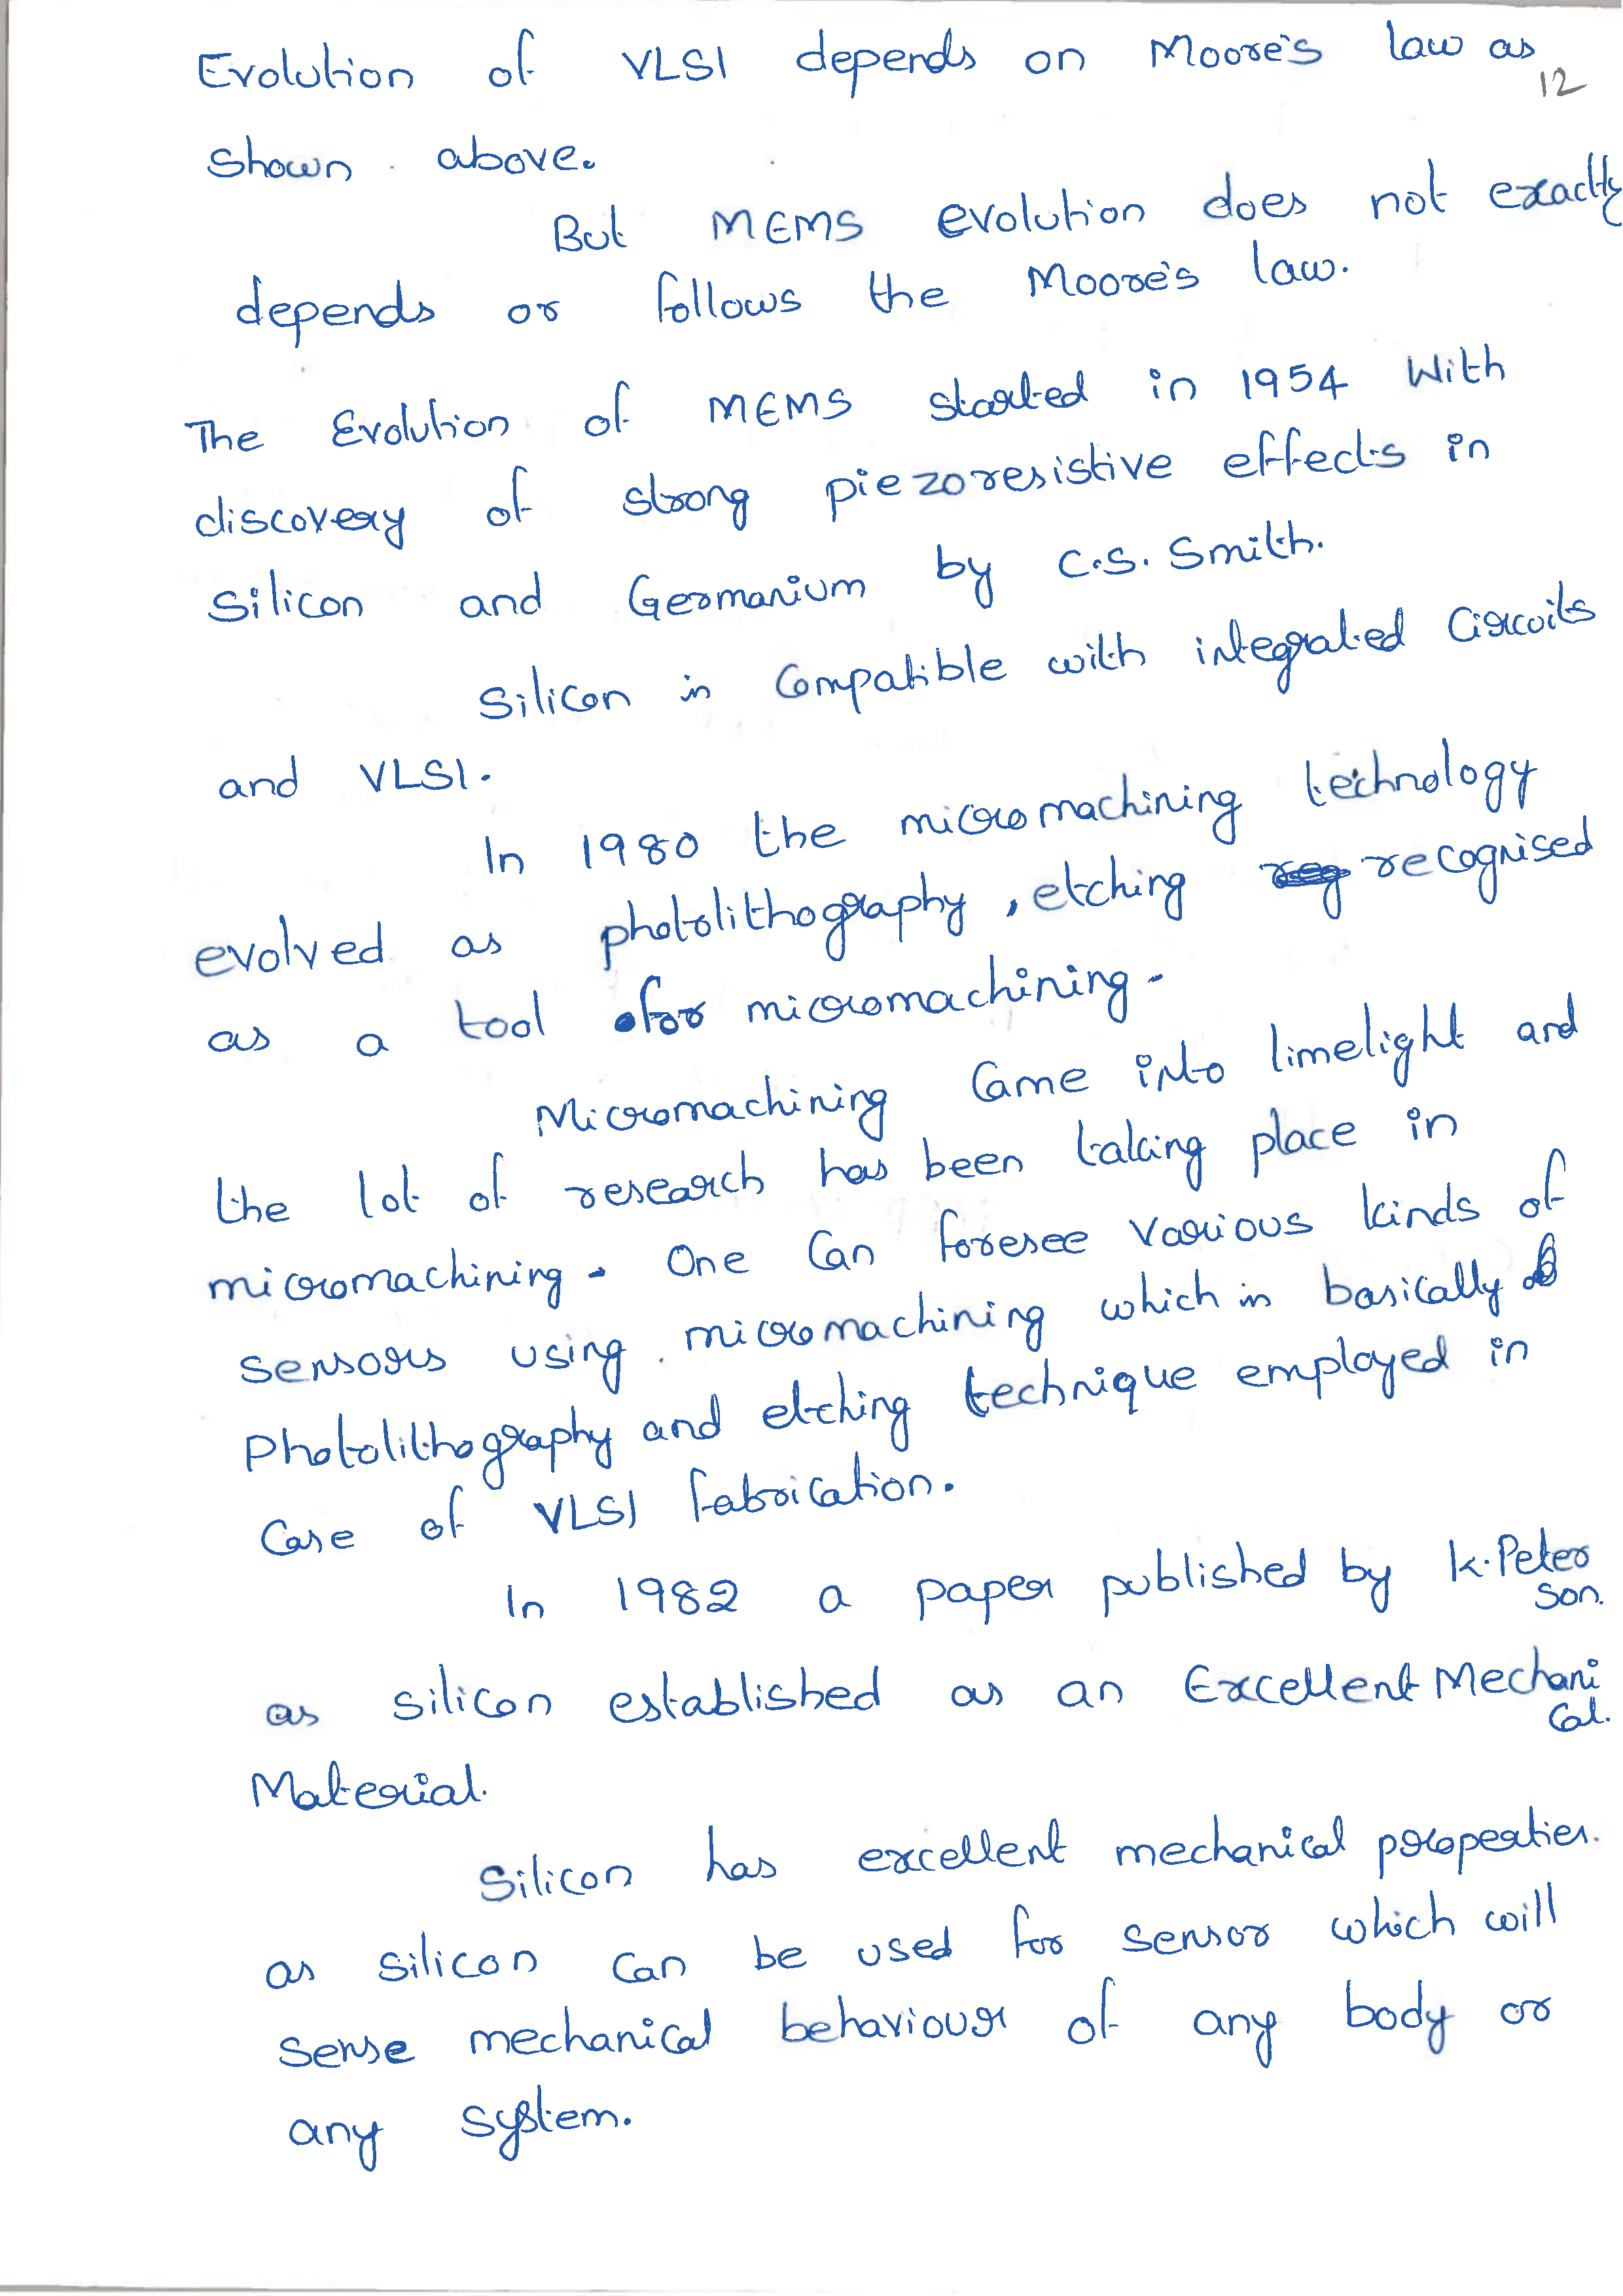 Evolution of VLSI depends on Moore's law as
12
shown above.
But MEMS evolution does not exactly
depends or follows the Moore's law.
The Evolution of MEMS started in 1954 With
discovery of strong piezoresistive effects in
Silicon and Germanium by C.S. Smith.
Silicon is Compatible with integrated Circuits
and VLSI.
In 1980 the micromachining technology
evolved as photolithography, etching recognised
as a tool for micromachining.
Micromachining Came into limelight and
the lot of research has been taking place in
micromachining. One Can foresee various kinds of
sensors using micromachining which is basically
Photolithography and etching technique employed in
Case of VLSI fabrication.
In 1982 a paper published by K. Peter
son.
as silicon established as an Excellent Mechani
cal.
Material.
Silicon has excellent mechanical properties.
as silicon can be used for sensor which will
sense mechanical behaviour of any body or
any system.